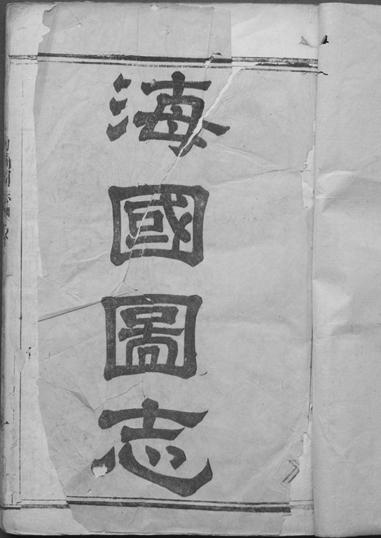 海國圖志